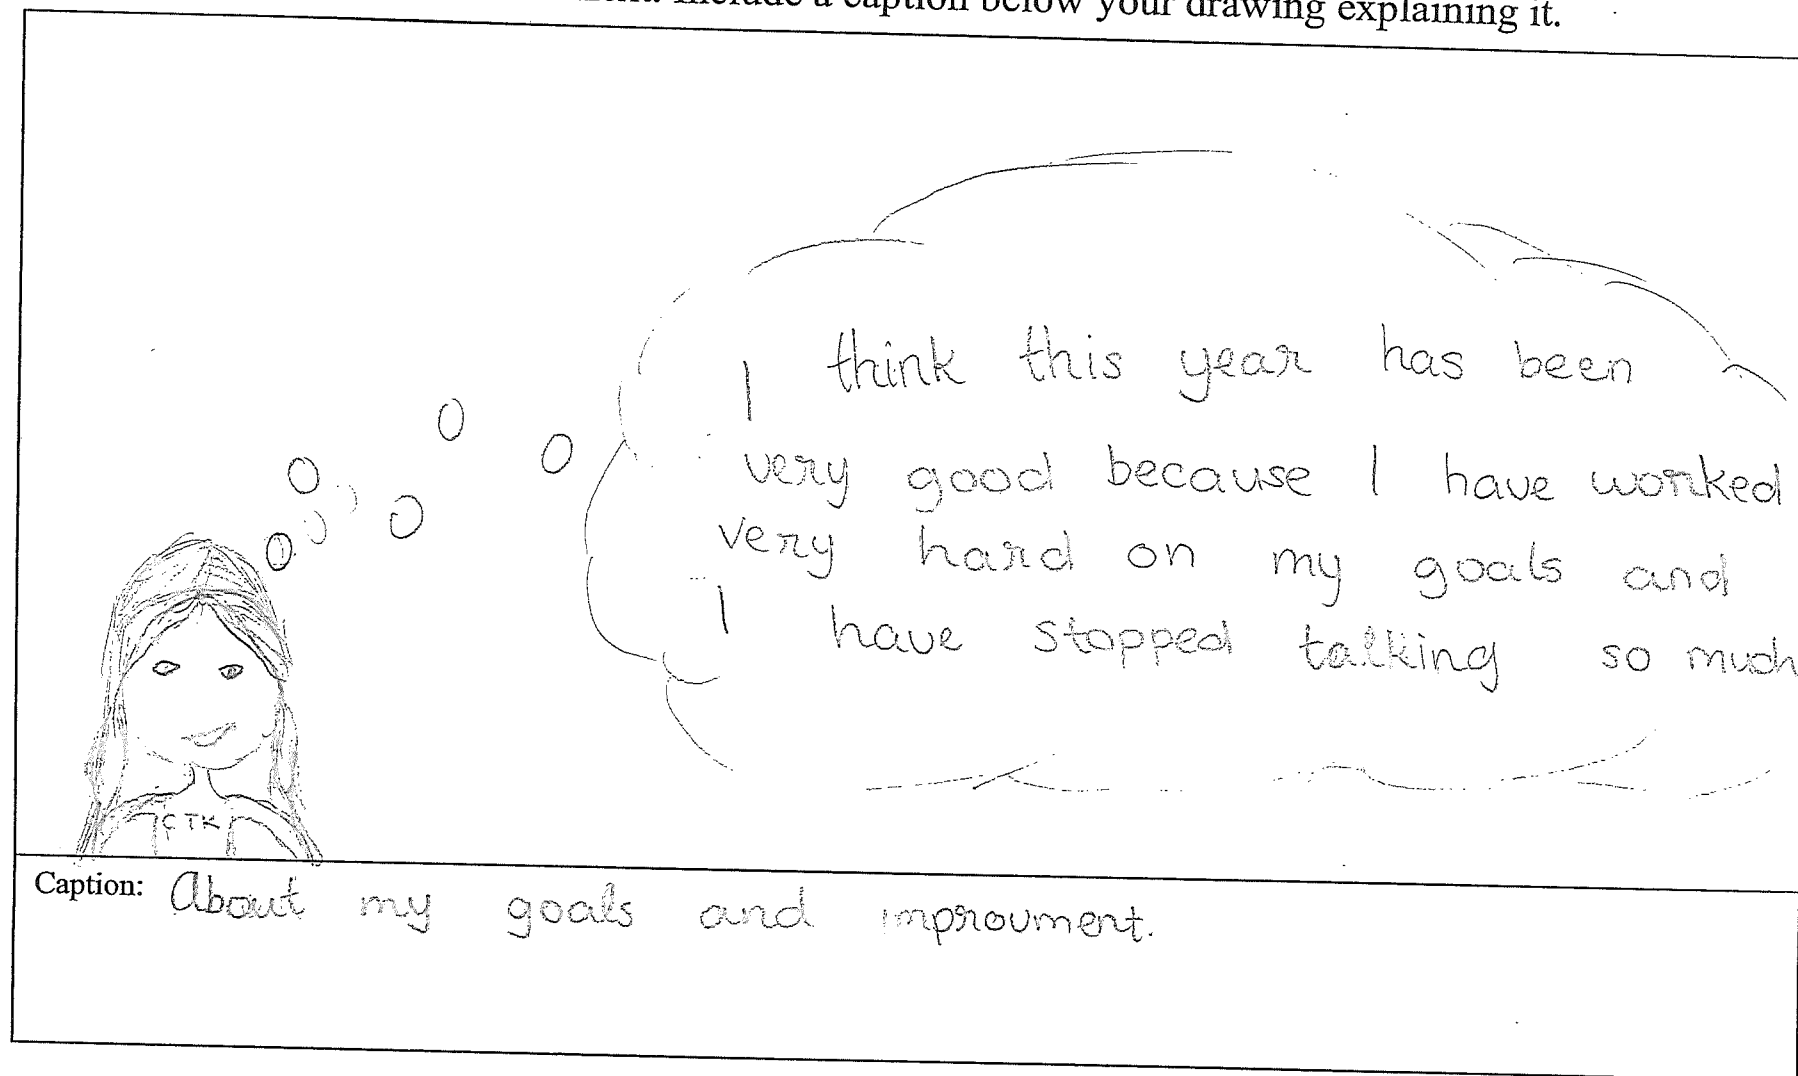 Include a caption below your drawing explaining it.
I think this year has been
very good because I have worked
very hard on my goals and
I have stopped talking so much
CTK
Caption: About my goals and improument.